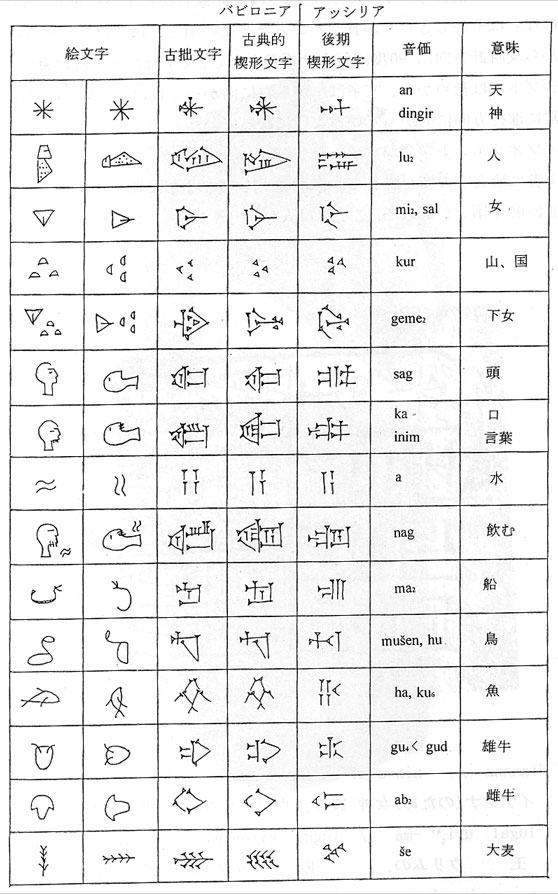 バビロニア アッシリア
絵文字 古拙文字 古典的楔形文字 後期楔形文字 音価 意味
an 天
dingir 神
lu₂ 人
mi₂, sal 女
kur 山、国
geme₂ 下女
sag 頭
ka 口
inim 言葉
a 水
nag 飲む
ma₂ 船
mušen, hu 鳥
ha, ku₆ 魚
gu₄ < gud 雄牛
ab₂ 雌牛
še 大麦